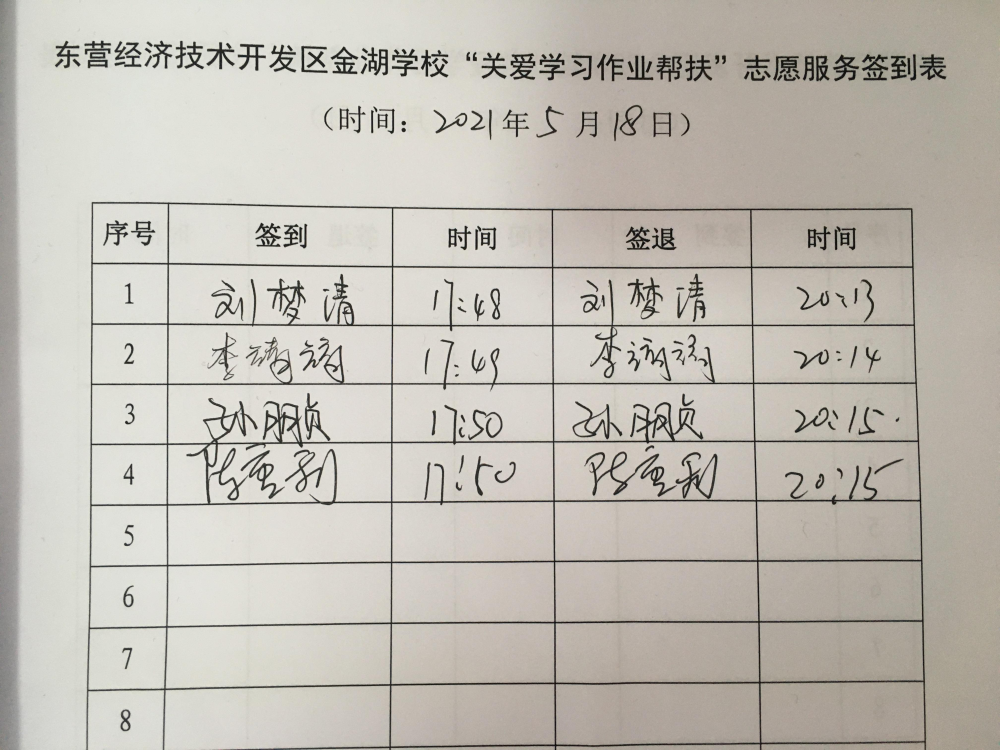 东营经济技术开发区金湖学校“关爱学习作业帮扶”志愿服务签到表
（时间：2021年5月18日）
序号 签到 时间 签退 时间
1 刘梦清 17:48 刘梦清 20:13
2 李 17:49 李 20:14
3 孙朋贞 17:50 孙朋贞 20:15.
4 陈重利 17:50 陈重利 20:15
5
6
7
8